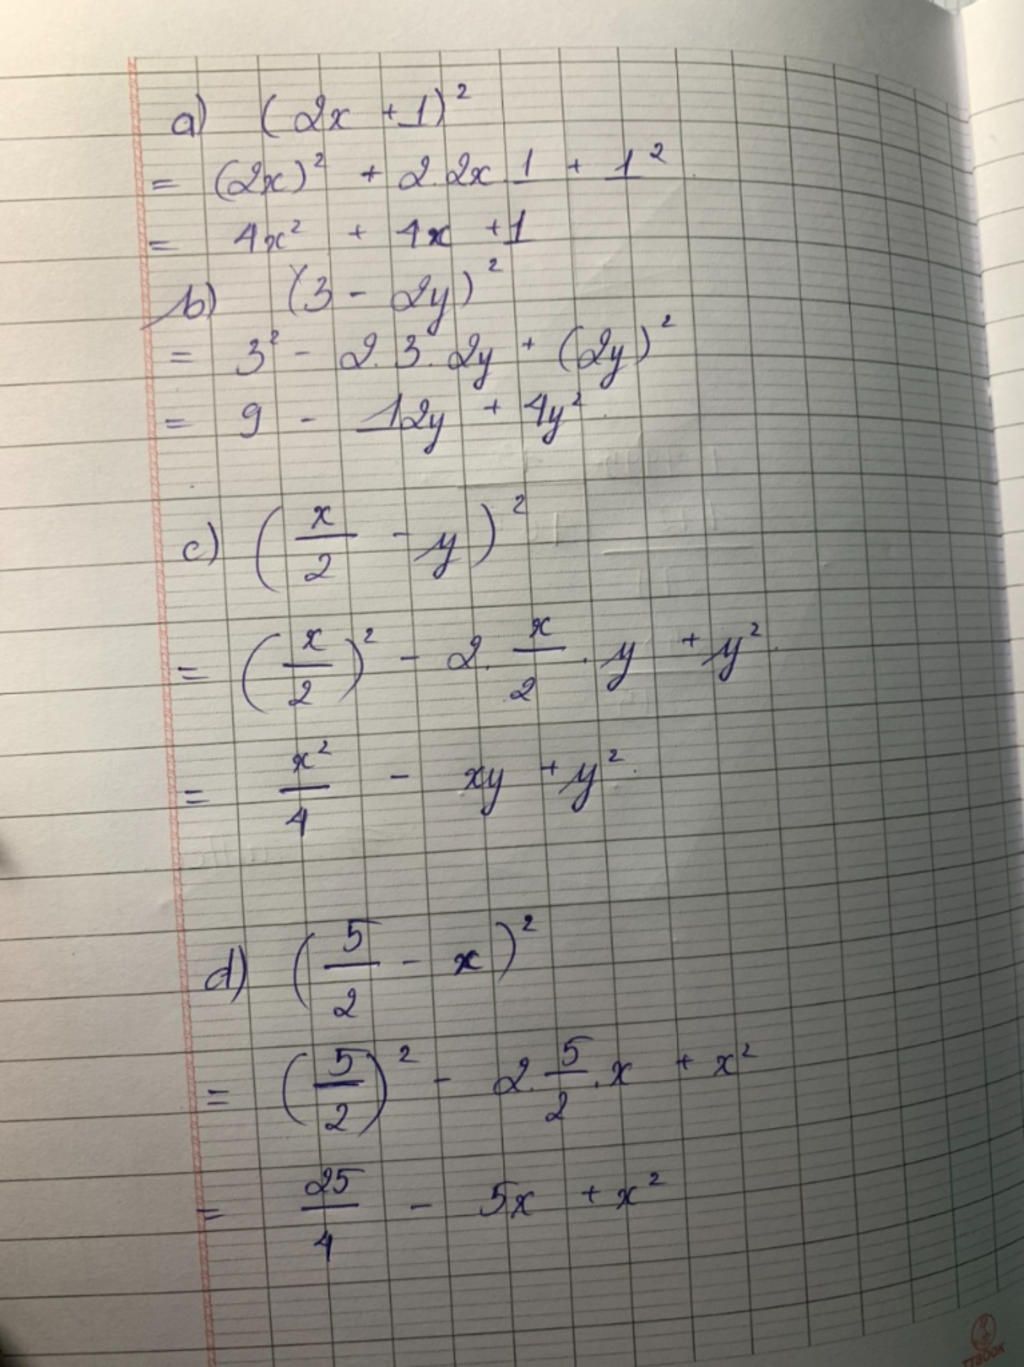 a) (2x + 1)²
= (2x)² + 2.2x.1 + 1²
= 4x² + 4x + 1
b) (3 - 2y)²
= 3² - 2.3.2y + (2y)²
= 9 - 12y + 4y²
c) (x/2 - y)²
= (x/2)² - 2.x/2.y + y²
= x²/4 - xy + y²
d) (5/2 - x)²
= (5/2)² - 2.5/2.x + x²
= 25/4 - 5x + x²